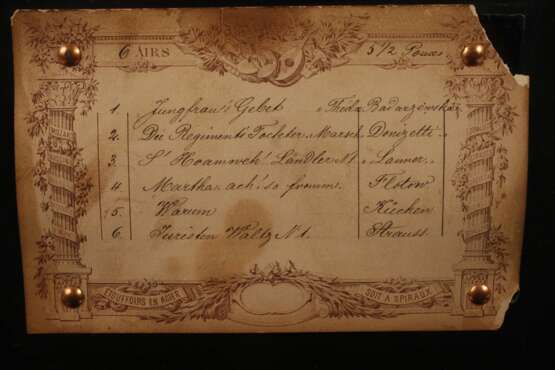 6 AIRS 5 1/2 Pouces
1. Jungfrau's Gebet " Theda Badarzewska
2. Die Regiments Tochter, Marsch " Donizetti "
3 S' Hoamweh! Ländler № 1 " Lanner "
4 Martha, ach! so fromm. Flotow
5. Warum Kücken
6. Juristen Waltz № 1 Strauss
MOZART
ETOUFFOIRS EN ACIER SOIT A SPIRAUX